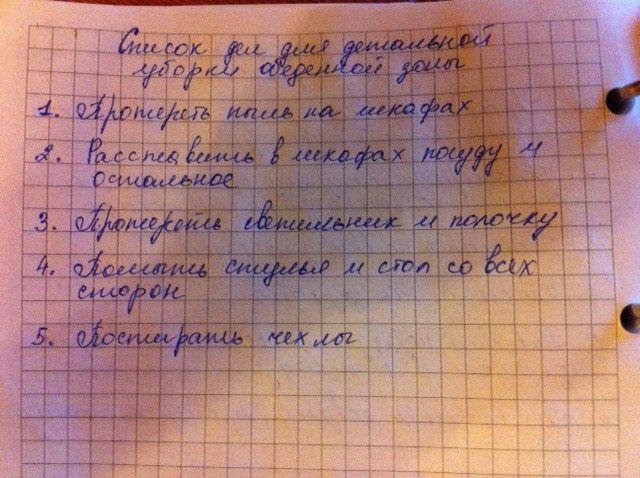 Список дел для детальной
уборки обеденной зоны
1. Протереть пыль на шкафах
2. Расставить в шкафах посуду и
остальное
3. Протереть светильник и полочку
4. Помыть стулья и стол со всех
сторон
5. Постирать чехлы